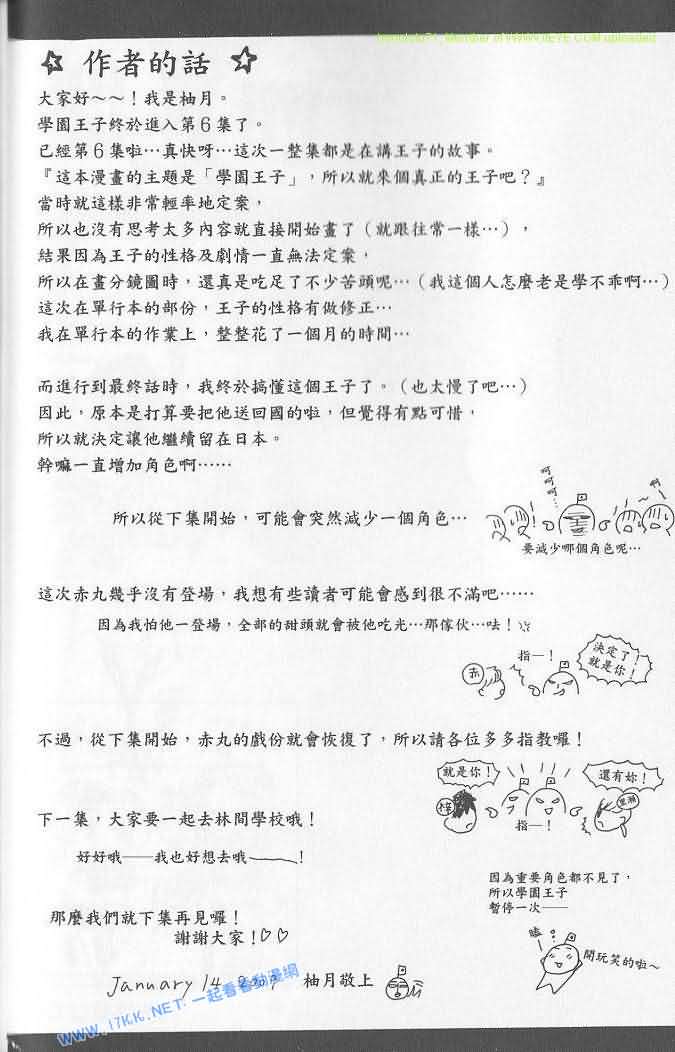 ☆ 作者的話 ☆
大家好～～！我是柚月。
學園王子終於進入第6集了。
已經第6集啦…真快呀…這次一整集都是在講王子的故事。
『這本漫畫的主題是「學園王子」，所以就來個真正的王子吧？』
當時就這樣非常輕率地定案，
所以也沒有思考太多內容就直接開始畫了（就跟往常一樣…），
結果因為王子的性格及劇情一直無法定案，
所以在畫分鏡圖時，還真是吃足了不少苦頭呢…（我這個人怎麼老是學不乖啊…）
這次在單行本的部份，王子的性格有做修正…
我在單行本的作業上，整整花了一個月的時間…
而進行到最終話時，我終於搞懂這個王子了。（也太慢了吧…）
因此，原本是打算要把他送回國的啦，但覺得有點可惜，
所以就決定讓他繼續留在日本。
幹嘛一直增加角色啊……
所以從下集開始，可能會突然減少一個角色…
呵呵呵…
啊
要減少哪個角色呢…
這次赤丸幾乎沒有登場，我想有些讀者可能會感到很不滿吧……
因為我怕他一登場，全部的甜頭就會被他吃光…那傢伙…呿！
赤
指—！
決定了！
就是你！
不過，從下集開始，赤丸的戲份就會恢復了，所以請各位多多指教囉！
就是你！
還有妳！
梓
黑瀨
指—！
下一集，大家要一起去林間學校哦！
好好哦——我也好想去哦———！
因為重要角色都不見了，
所以學園王子
暫停一次——
那麼我們就下集再見囉！
謝謝大家！♡♡
嗑
開玩笑的啦～
January 14 2009 柚月敬上
WWW.17KK.NET 一起看看動漫網